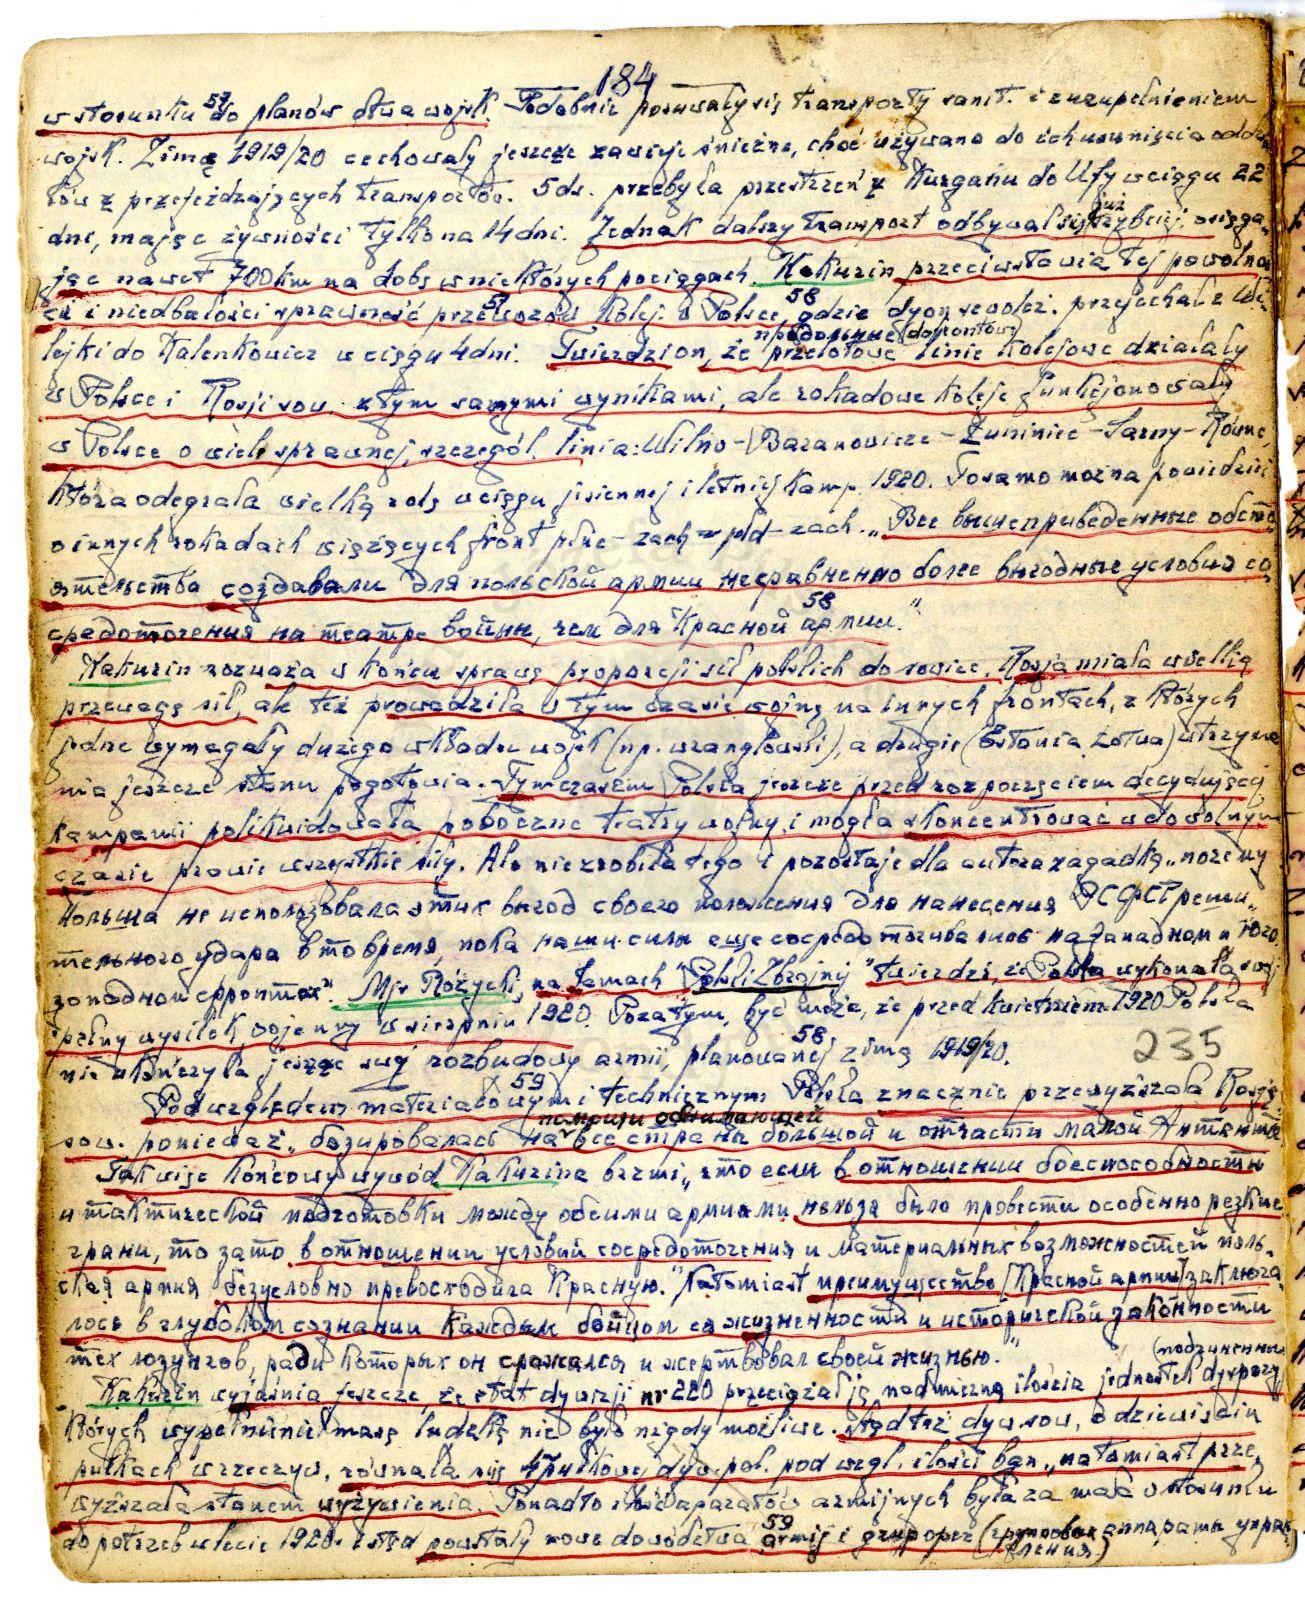 184
w stosunku do planów dtwa wojsk.⁵⁷ Podobnie posuwały się transporty sanit. i z uzupełnieniem
wojsk. Zimę 1919/20 cechowały jeszcze zawieje śnieżne, choć używano do ich usunięcia oddzia
łów z przejeżdzających transportów. 5 dr. przebyła przestrzeń z Kurganu do Ufy w ciągu 22
dni, mając żywności tylko na 14 dni. Jednak dalszy transport odbywał się już szybciej, osiąga-
jąc nawet 700 km na dobę w niektórych pociągach. Kakurin przeciwstawia tej powolnoś
ci i niedbałości sprawność przewozów kolej. w Polsce,⁵⁸ gdzie dyon przejechał z Wi
lejki do Kalenkowicz w ciągu 4 dni. Twierdzi on, że przelotowe продольные (dofrontowe) linie kolejowe działały
w Polsce i Rosji sow. z tym samymi wynikami, ale rokadowe koleje funkcjonowały
w Polsce o wiele sprawniej, szczegól. linia: Wilno – Baranowicze – Łuniniec – Sarny – Równe,
która odegrała wielką rolę w ciągu jesiennej i letniej kamp. 1920. To samo można powiedzieć
o innych rokadach wiążących front płnc – zach z płd – zach. „Все вышеприведенные обсто
ятельства создавали для польской армии несравненно более выгодные условия со-
средоточения на театре войны, чем для Красной армии.⁵⁸”
Kakurin rozważa w końcu sprawę proporcji sił polskich do sowiec. Rosja miała wielką
przewagę sił, ale też prowadziła w tym czasie wojnę na innych frontach, z których
jedne wymagały dużego wkładu wojsk (np. wranglowski), a drugie (Estonia Łotwa) utrzyma
nia jeszcze stanu pogotowia. Tymczasem Polska jeszcze przed rozpoczęciem decydującej
kampanii polikwidowała poboczne teatry wojny i mogła skoncentrować w dowolnym
czasie prawie wszystkie siły. Ale nie zrobiła tego i pozostaje dla autora zagadką „почему
Польша не использовала этих выгод своего положения для нанесения РСФСР реши-
тельного удара в то время, пока наши силы еще сосредоточивались на Западном и Юго-
западном фронтах”. Mjr Różycki, na łamach "Polski Zbrojnej" twierdzi, że Polska wykonała swój
pełny wysiłek wojenny w sierpniu 1920. Pozatym, być może, że przed kwietniem 1920 Polska
nie ukończyła jeszcze swej rozbudowy armii, planowanej zimą 1919/20.⁵⁸
235
Pod względem materiałowym⁵⁹ i technicznym Polska znacznie przewyższała Rosję
sow. ponieważ „базировалась на помощи обнимающей все страны большой и отчасти малой Антанты
Tak więc końcowy wywód Kakurina brzmi „что если в отношении боеспособности
и тактической подготовки между обеими армиями нельзя было провести особенно резкие
грани, то зато в отношении условий сосредоточения и материальных возможностей поль-
ская армия безусловно превосходила Красную.” Natomiast преимущество [Красной армии] заключа
лось в глубоком сознании каждым бойцом ее жизненности и исторической законности
тех лозунгов, ради которых он сражался и жертвовал своей жизнью.”
Kakurin wyjaśnia jeszcze, że etat dywizji nr 220 przeciążał ją nadmierną ilością jednostek dyspozy
których wypełnienie masą ludzką nie było nigdy możliwe. Stąd też dyw. sow. o dziewięciu
pułkach w rzeczyw. równała się 4 pułkowej dyw. pol. pod wzgl. ilości bgn., natomiast prze-
wyższała stanem wyżywienia. Ponadto ilość aparatów armijnych była za mała w stosunku
do potrzeb w lecie 1920 i stąd powstały nowe dowództwa armij⁵⁹ i grup oper (групповые аппараты управ
ления)